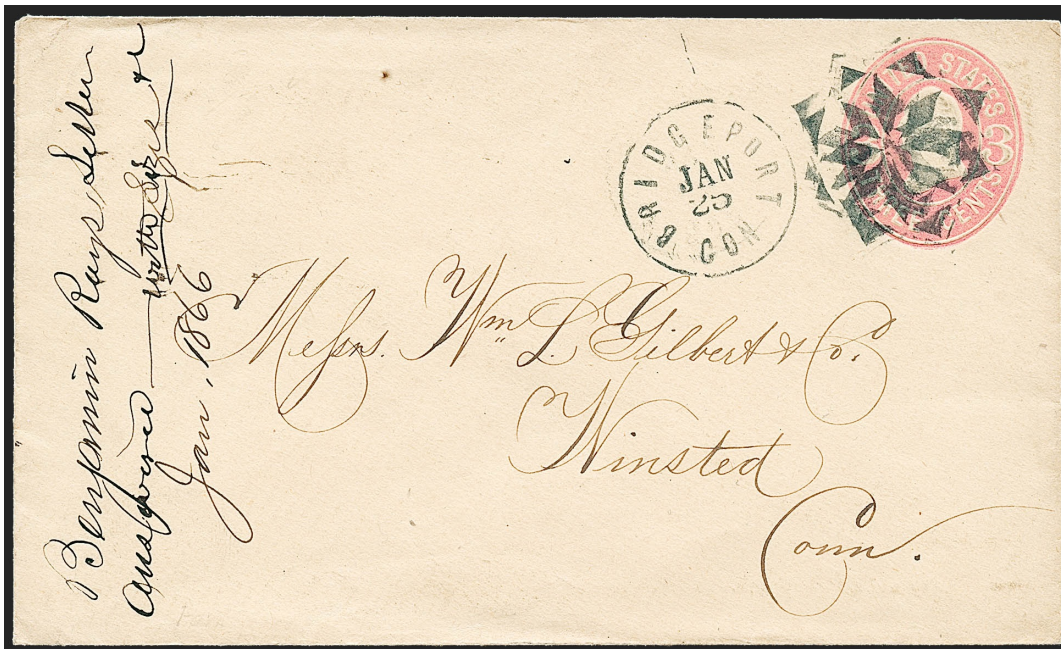 Benjamin Rays Letter
answered
Jan. 1866
BRIDGEPORT CON.
JAN
25
UNITED STATES
3
THREE CENTS
Messrs. Wm. L. Gilbert & Co.
Winsted
Conn.